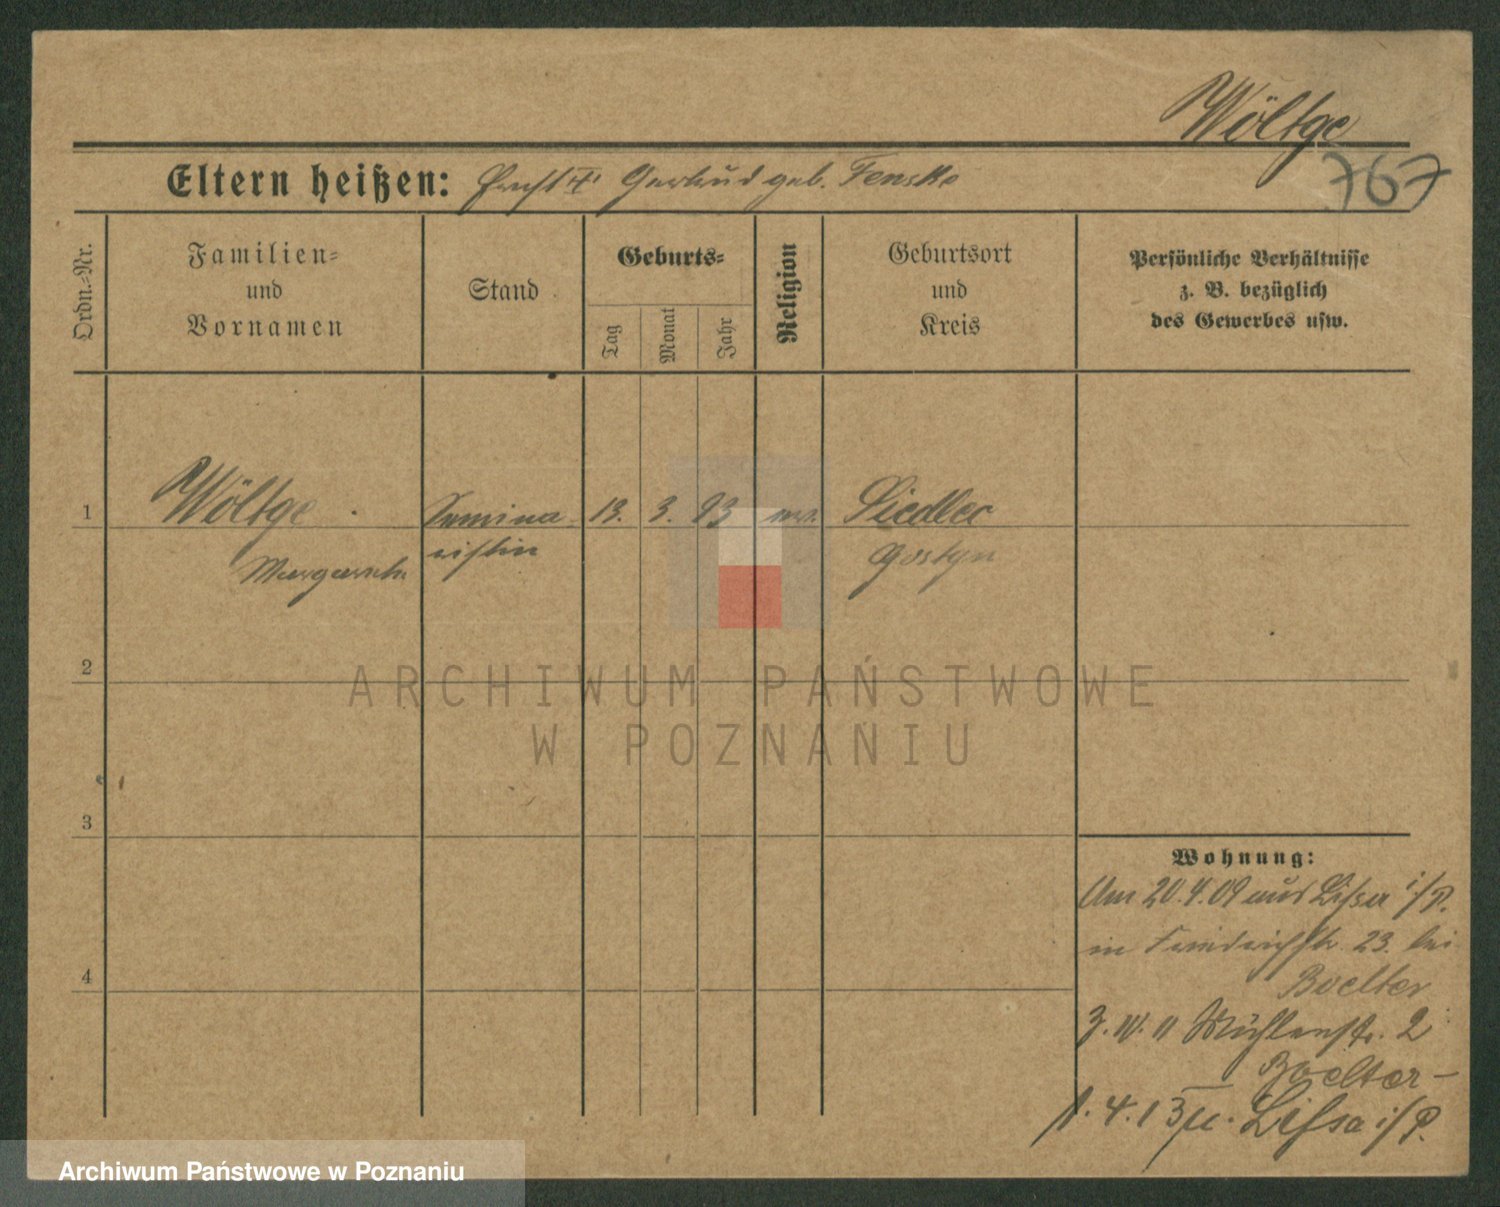 Wöltge
767
Eltern heißen: Ernst † Gertrud geb. Fenske
Ordn.-Nr.
Familien-
und
Vornamen
Stand
Geburts-
Tag
Monat
Jahr
Religion
Geburtsort
und
Kreis
Persönliche Verhältnisse
z. B. bezüglich
des Gewerbes usw.
1
Wöltge
Margarete
Semina-
ristin
13. 3. 93
ev.
Siedlec
Gostyn
2
3
4
Wohnung:
Am 20.4.09 aus Lissa i/P.
in Friedrichstr. 23. bei
Boelter
3. IV. 11 Mühlenstr. 2
Boelter
1.4.13 n. Lissa i/P.
ARCHIWUM PAŃSTWOWE
W POZNANIU
Archiwum Państwowe w Poznaniu